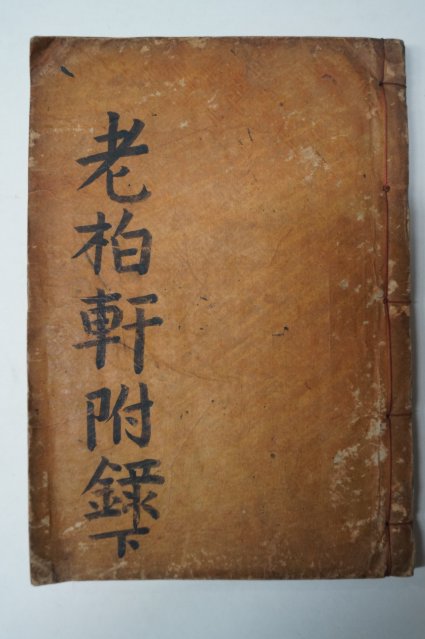 老柏軒附錄下